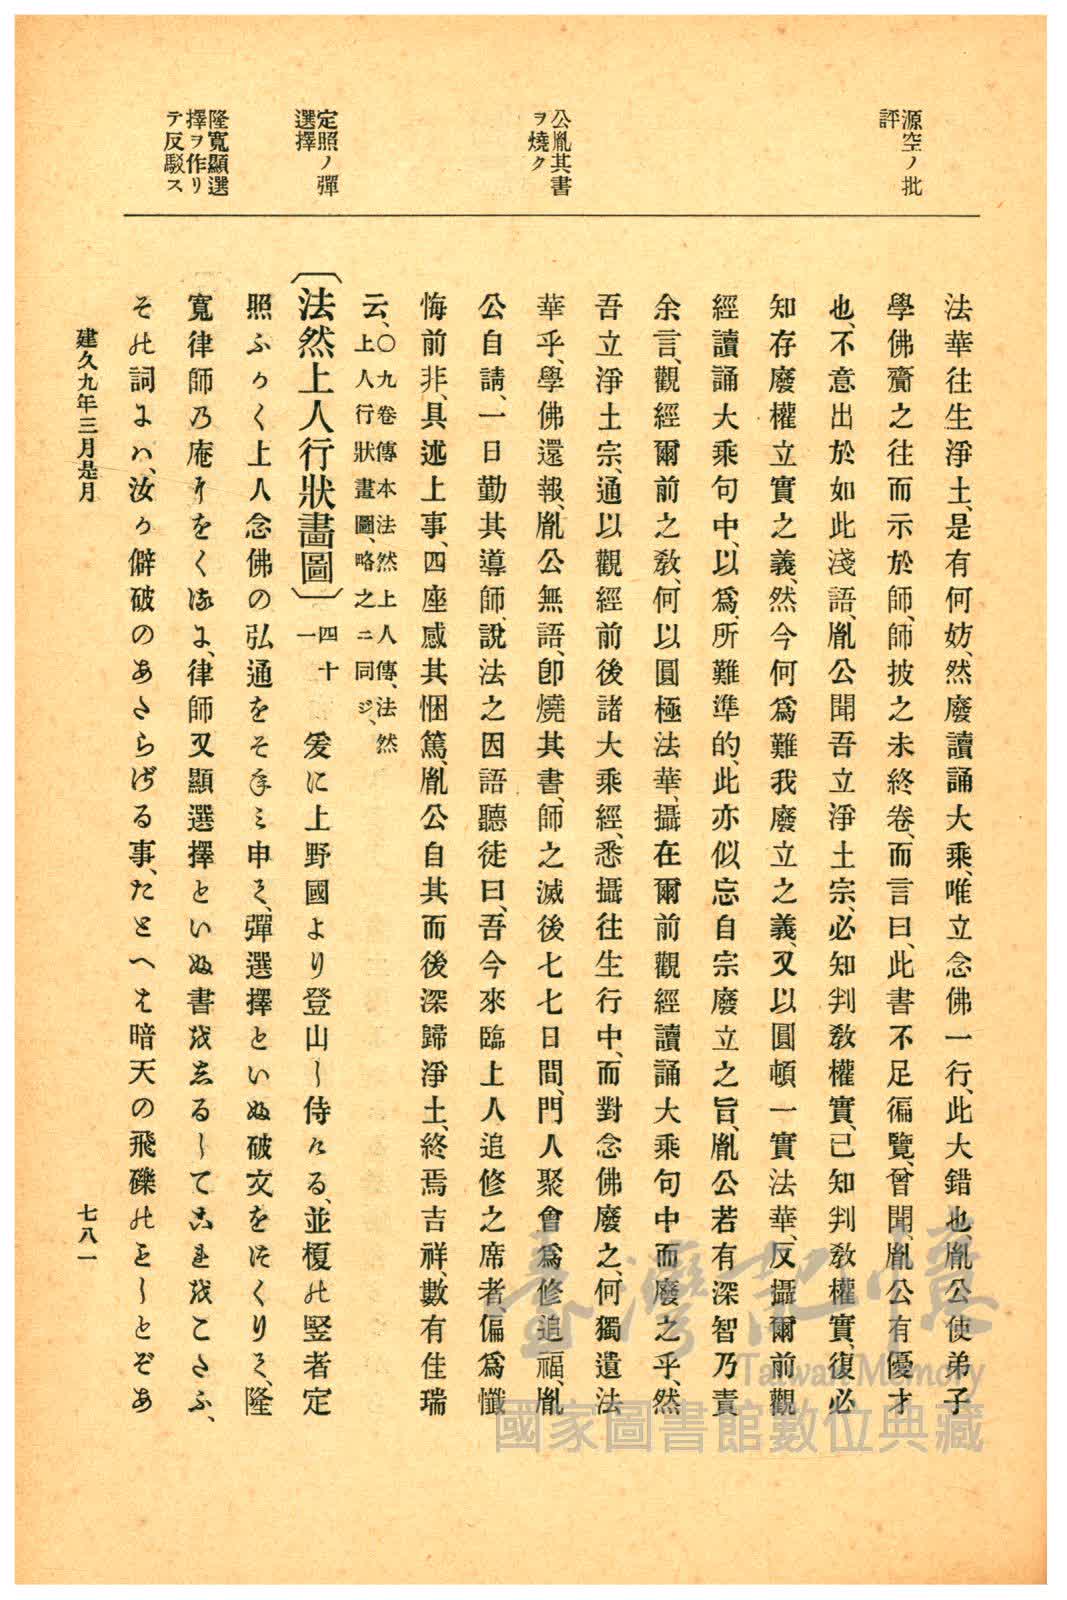 源空ノ批
評
公胤其書
ヲ燒ク
定照ノ彈
選擇
隆寬顯選
擇ヲ作リ
テ反駁ス
法華往生淨土、是有何妨、然廢讀誦大乘、唯立念佛一行、此大錯也、胤公使弟子
學佛齎之往而示於師、師披之未終卷、而言曰、此書不足徧覽、曾聞、胤公有優才
也、不意出於如此淺語、胤公聞吾立淨土宗、必知判教權實、已知判教權實、復必
知存廢權立實之義、然今何爲難我廢立之義、又以圓頓一實法華、反攝爾前觀
經讀誦大乘句中、以爲、所難準的、此亦似忘自宗廢立之旨、胤公若有深智乃責
余言、觀經爾前之教、何以圓極法華、攝在爾前觀經讀誦大乘句中而廢之乎、然
吾立淨土宗、通以觀經前後諸大乘經、悉攝往生行中、而對念佛廢之、何獨遺法
華乎、學佛還報、胤公無語、卽燒其書、師之滅後七七日間、門人聚會爲修追福、胤
公自請、一日勤其導師、說法之因語聽徒曰、吾今來臨上人追修之席者偏爲懺
悔前非、具述上事、四座感其悃篤、胤公自其而後深歸淨土、終焉吉祥、數有佳瑞
云、〇九卷傳本法然上人傳、法然
上人行狀畫圖、略之ニ同ジ、
〔法然上人行狀畫圖〕四十
一 爰に上野國より登山し侍ける、並榎の竪者定
照ふかく上人念佛の弘通をそねミ申て、彈選擇といふ破文をつくりて、隆
寬律師の庵にをくるに、律師又顯選擇といふ書をしるしてこれをこたふ、
その詞には、汝か僻破のあたらざる事、たとへは暗天の飛礫のことしとぞあ
建久九年三月是月
七八一
臺灣記憶
Taiwan Memory
國家圖書館數位典藏